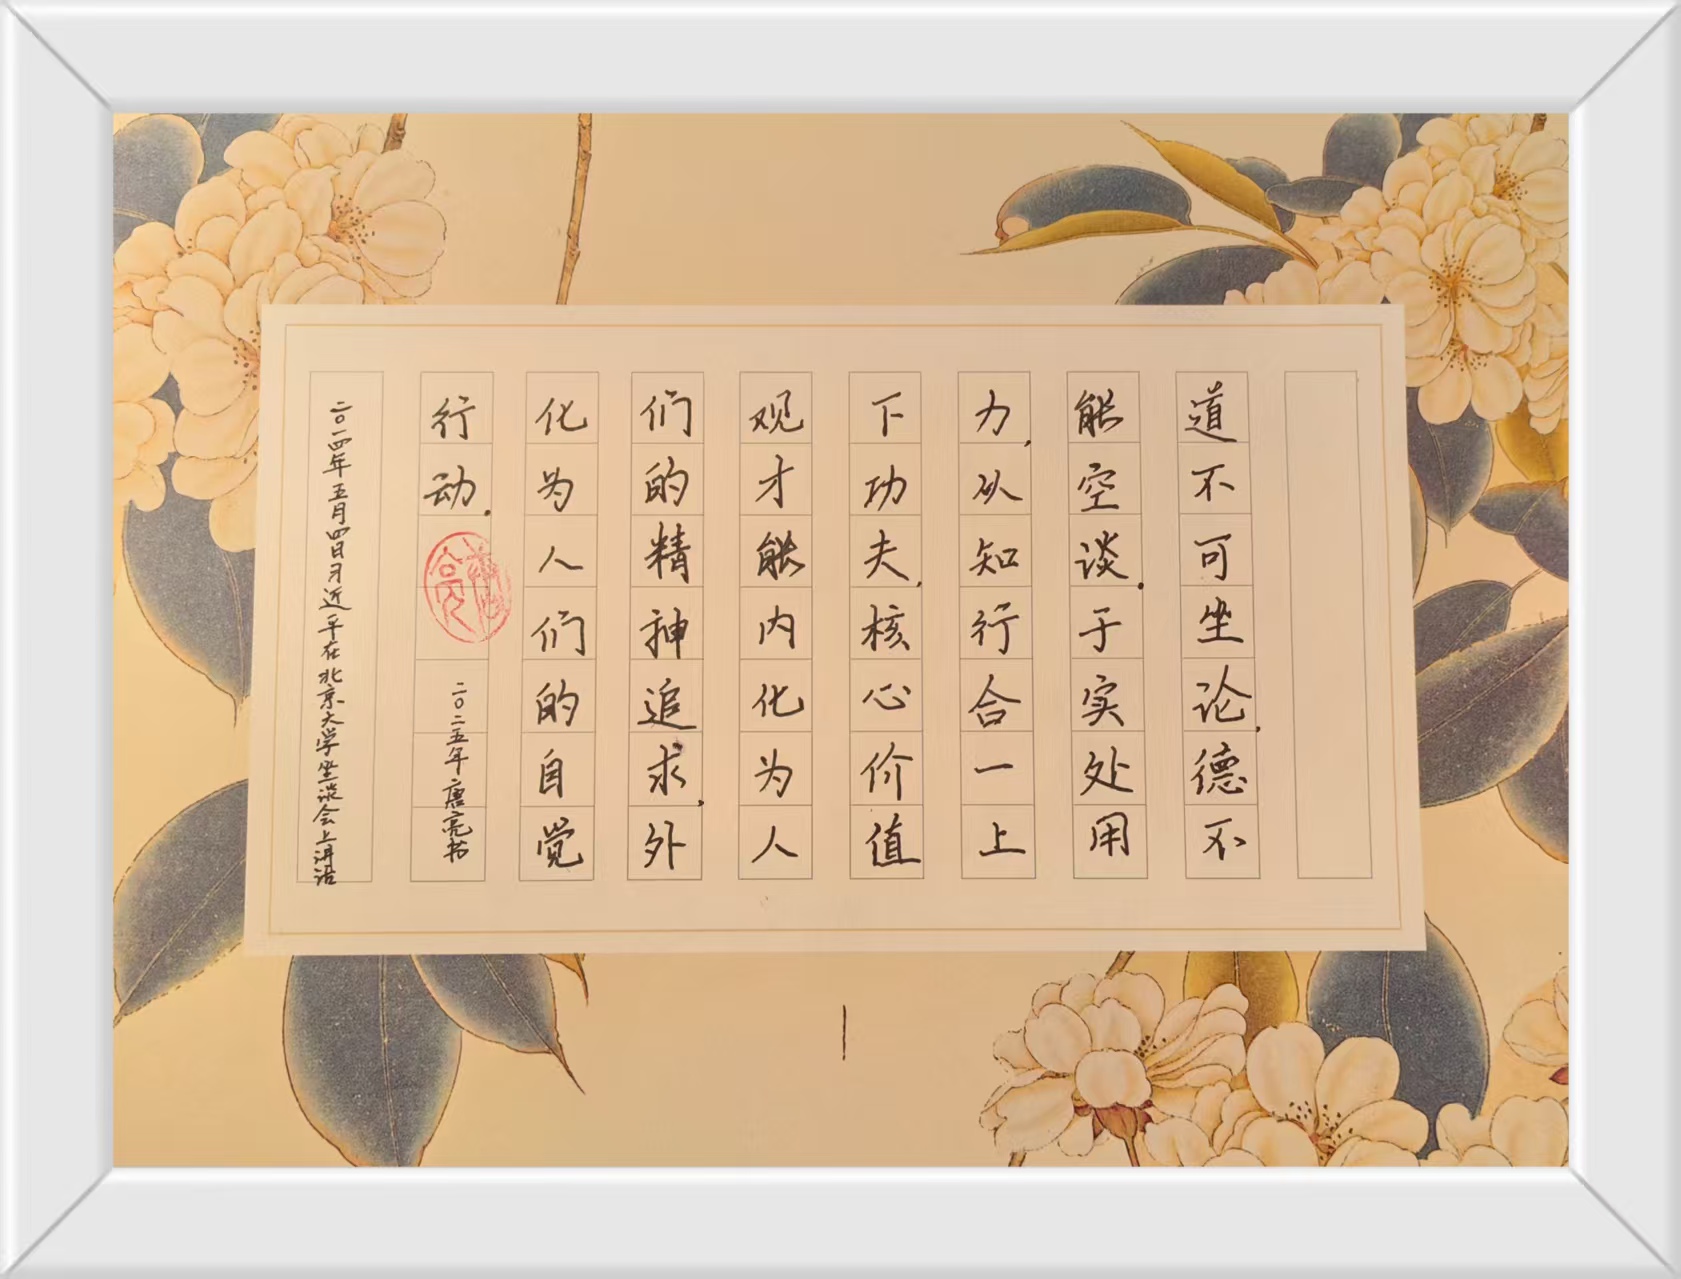 道不可坐论,德不
能空谈.于实处用
力,从知行合一上
下功夫,核心价值
观才能内化为人
们的精神追求,外
化为人们的自觉
行动.
二〇二五年唐亮书
二〇一四年五月四日习近平在北京大学坐谈会上讲话